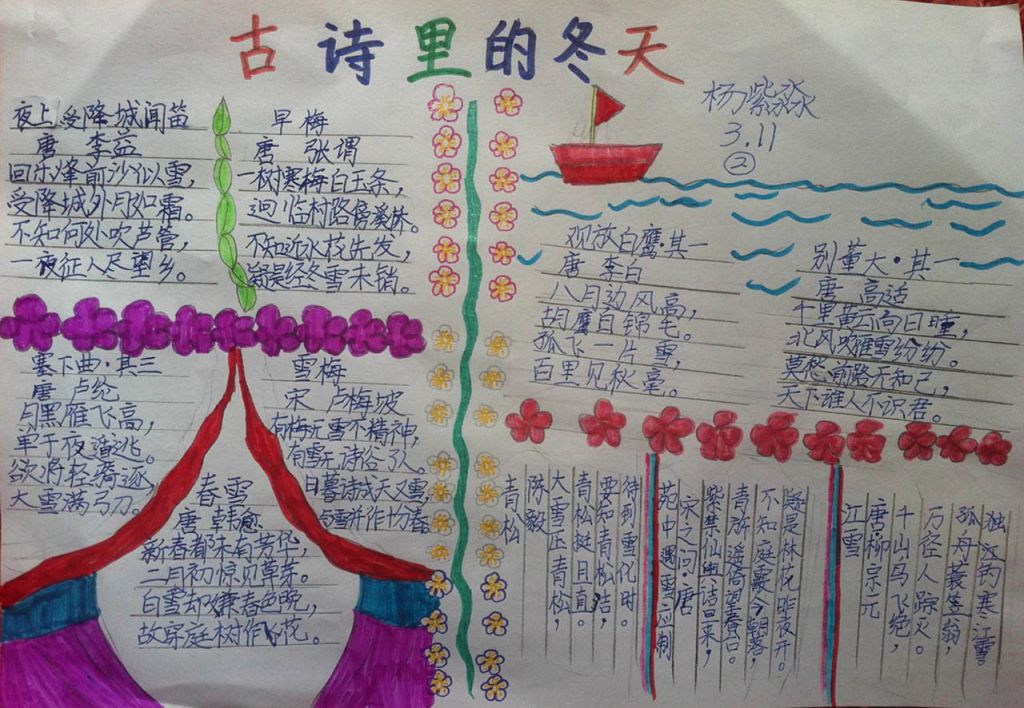 古诗里的冬天
杨紫淼
3.11
②
夜上受降城闻笛
唐 李益
回乐烽前沙似雪，
受降城外月如霜。
不知何处吹芦管，
一夜征人尽望乡。
早梅
唐 张谓
一树寒梅白玉条，
迥临村路傍溪桥。
不知近水花先发，
疑是经冬雪未销。
塞下曲·其三
唐 卢纶
月黑雁飞高，
单于夜遁逃。
欲将轻骑逐，
大雪满弓刀。
雪梅
宋 卢梅坡
有梅无雪不精神，
有雪无诗俗了人。
日暮诗成天又雪，
与梅并作十分春
春雪
唐 韩愈
新春都未有芳华，
二月初惊见草芽。
白雪却嫌春色晚，
故穿庭树作飞花。
观放白鹰·其一
唐 李白
八月边风高，
胡鹰白锦毛。
孤飞一片雪，
百里见秋毫。
别董大·其一
唐 高适
千里黄云白日曛，
北风吹雁雪纷纷。
莫愁前路无知己，
天下谁人不识君。
青松
陈毅
大雪压青松，
青松挺且直。
要知青松洁，
待到雪化时。
苑中遇雪应制
宋之问·唐
紫禁仙舆诘旦来，
青旂遥倚望春台。
不知庭霰今朝落，
疑是林花昨夜开。
江雪
唐·柳宗元
千山鸟飞绝，
万径人踪灭。
孤舟蓑笠翁，
独钓寒江雪。